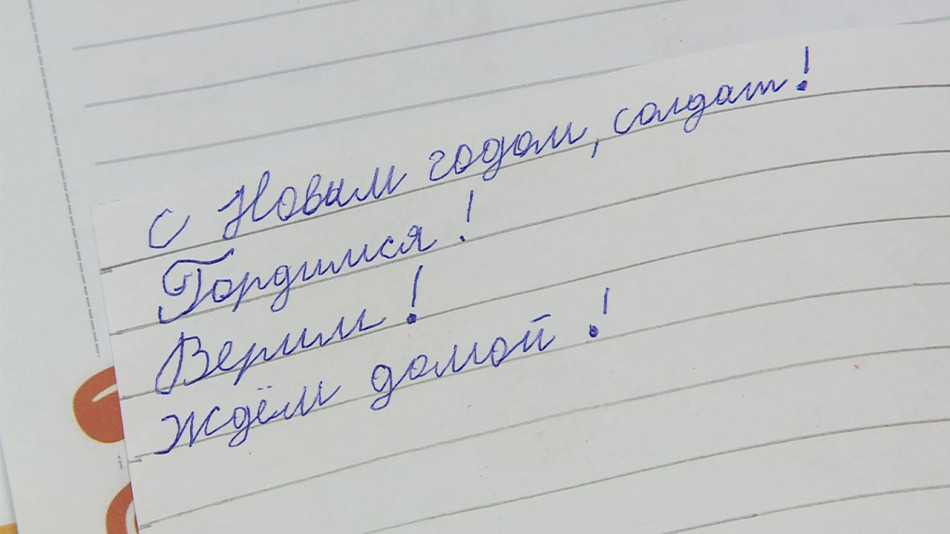 С Новым годом, солдат!
Гордимся!
Верим!
Ждём домой!